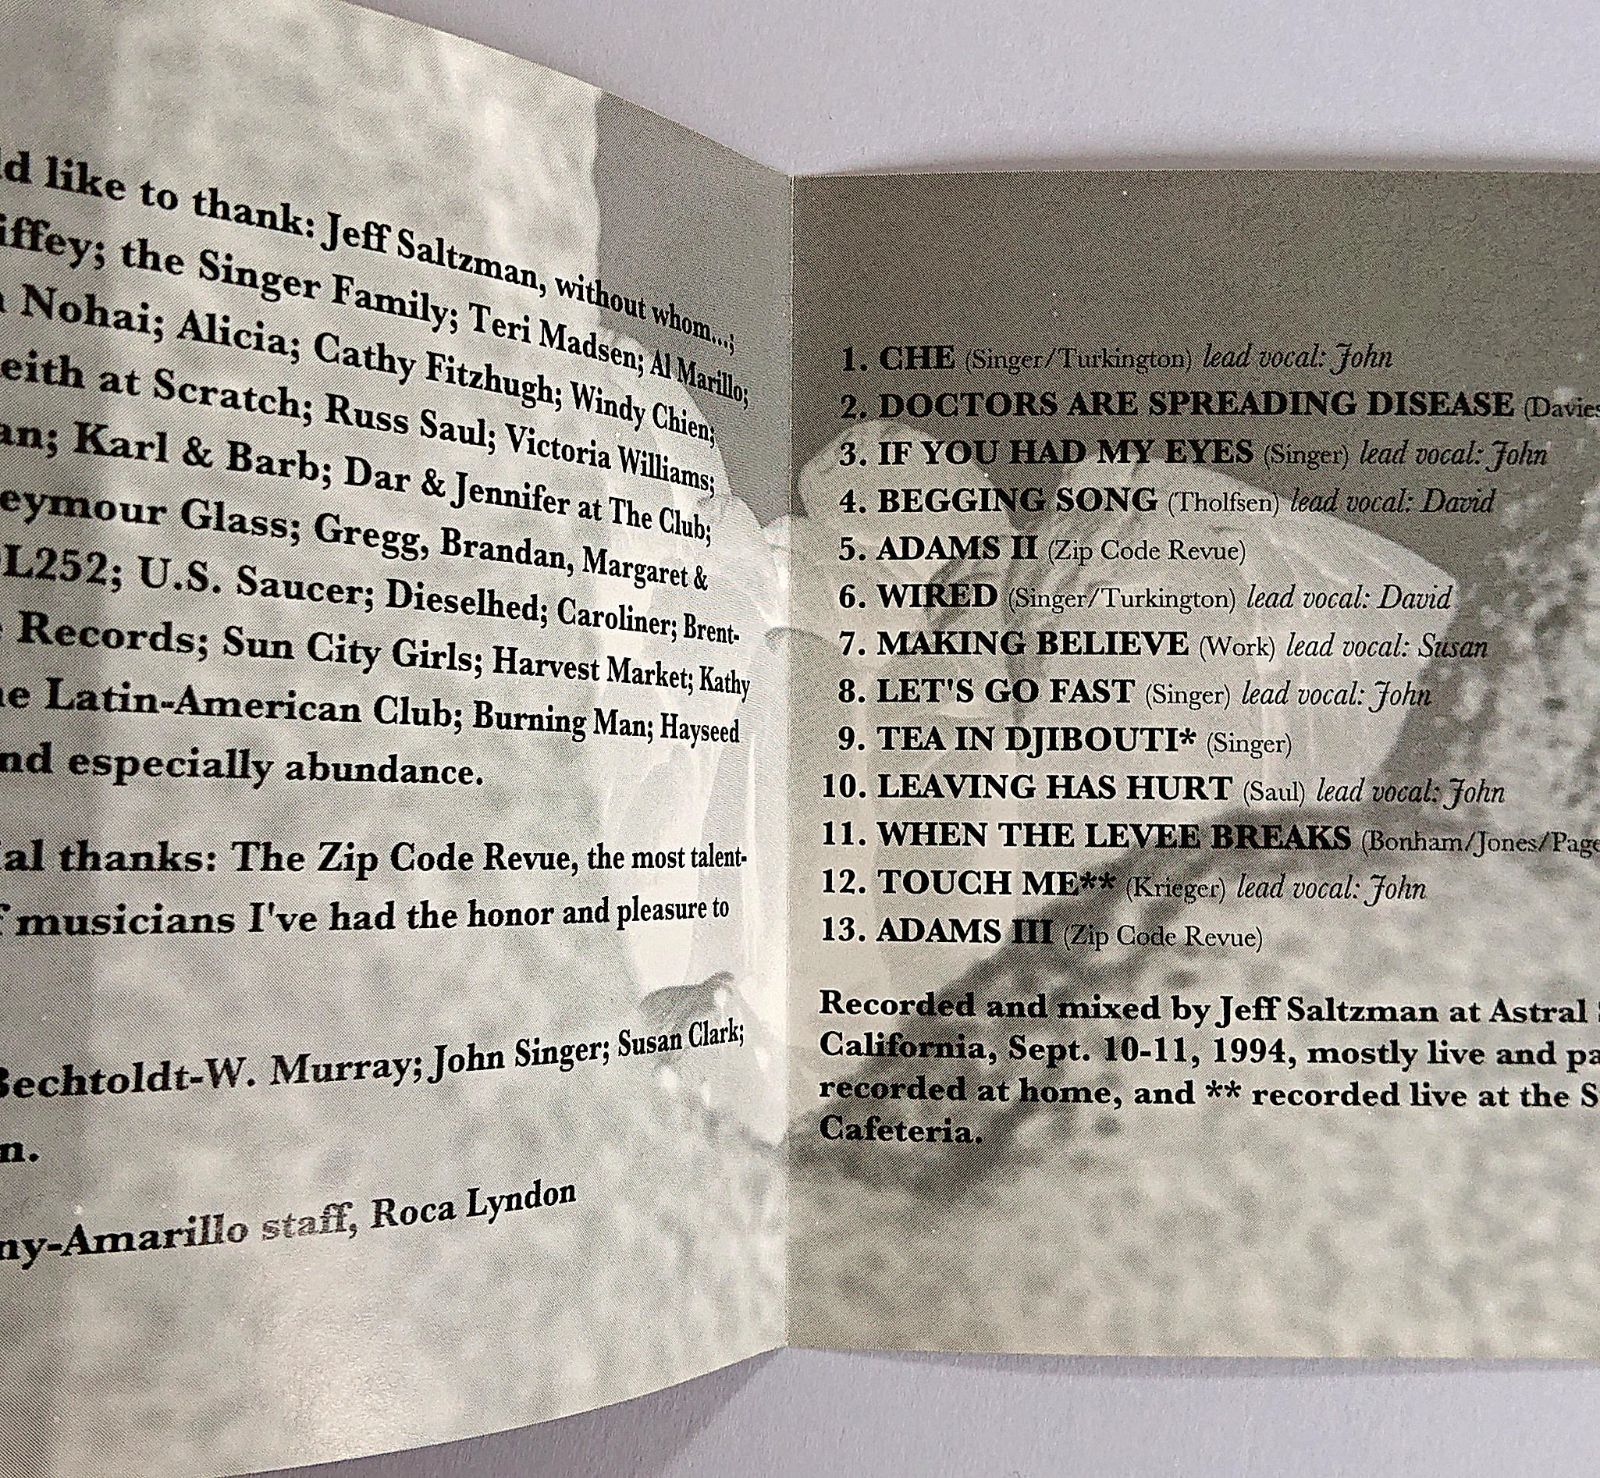 like to thank: Jeff Saltzman, without whom...;
the Singer Family; Teri Madsen; Al Marillo;
Nohai; Alicia; Cathy Fitzhugh; Windy Chien;
at Scratch; Russ Saul; Victoria Williams;
Karl & Barb; Dar & Jennifer at The Club;
Glass; Gregg, Brandan, Margaret &
L252; U.S. Saucer; Dieselhed; Caroliner; Brent-
Records; Sun City Girls; Harvest Market; Kathy
Latin-American Club; Burning Man; Hayseed
especially abundance.
thanks: The Zip Code Revue, the most talent-
musicians I've had the honor and pleasure to
Bechtoldt-W. Murray; John Singer; Susan Clark;
ny-Amarillo staff, Roca Lyndon
1. CHE (Singer/Turkington) lead vocal: John
2. DOCTORS ARE SPREADING DISEASE (Davies
3. IF YOU HAD MY EYES (Singer) lead vocal: John
4. BEGGING SONG (Tholfsen) lead vocal: David
5. ADAMS II (Zip Code Revue)
6. WIRED (Singer/Turkington) lead vocal: David
7. MAKING BELIEVE (Work) lead vocal: Susan
8. LET'S GO FAST (Singer) lead vocal: John
9. TEA IN DJIBOUTI* (Singer)
10. LEAVING HAS HURT (Saul) lead vocal: John
11. WHEN THE LEVEE BREAKS (Bonham/Jones/Page
12. TOUCH ME** (Krieger) lead vocal: John
13. ADAMS III (Zip Code Revue)
Recorded and mixed by Jeff Saltzman at Astral
California, Sept. 10-11, 1994, mostly live and
recorded at home, and ** recorded live at the
Cafeteria.